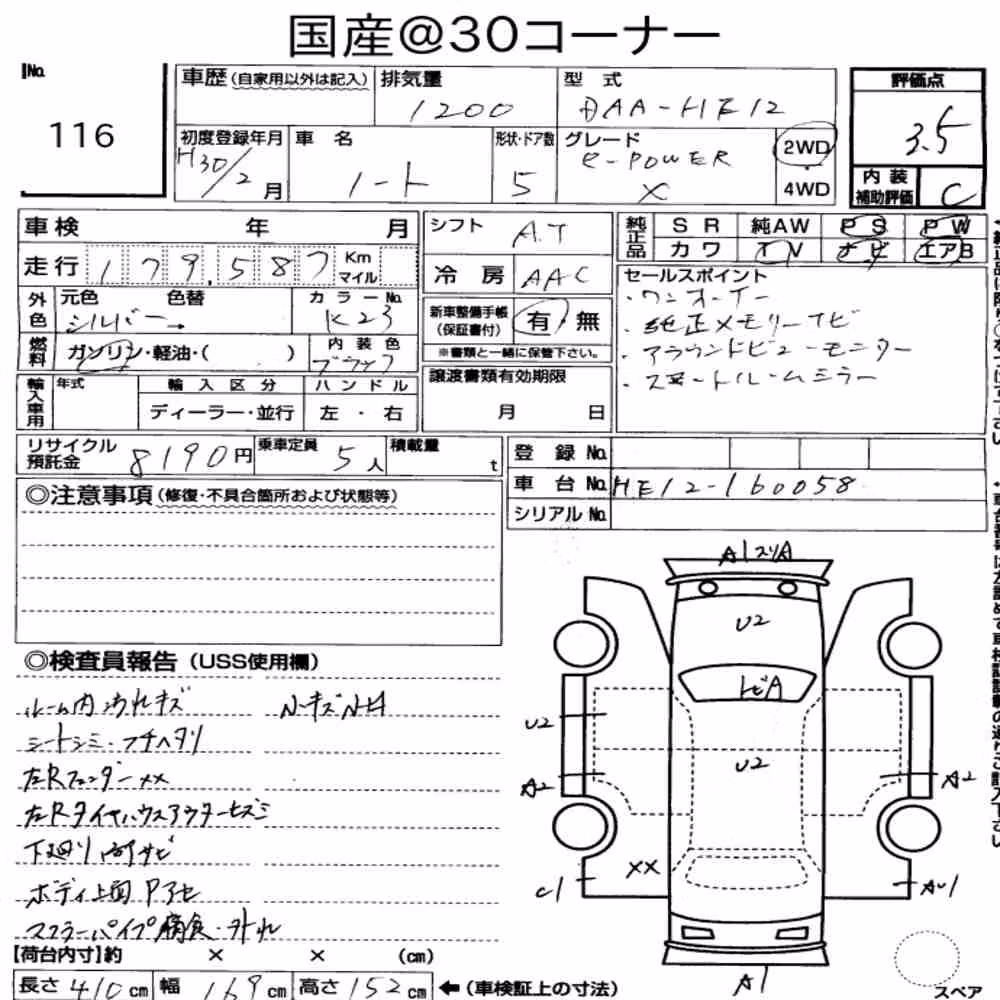 国産@30コーナー
No.
116
車歴(自家用以外は記入)
排気量
1200
型 式
DAA-HE12
評価点
3.5
初度登録年月
H30/2月
車 名
ノート
形状・ドア数
5
グレード
e-POWER
X
2WD
・
4WD
内 装
補助評価
C
車検 年 月
走行 179,587 Km マイル
外色
元色 色替
シルバー→
カラーNo.
K23
燃料
ガソリン・軽油・( )
内 装 色
ブラック
輸入車用
年式
輸 入 区 分
ディーラー・並行
ハ ン ド ル
左 ・ 右
シフト A.T
冷 房 AAC
新車整備手帳
(保証書付)
有・無
※書類と一緒に保管下さい。
譲渡書類有効期限
月 日
純正品
S R 純AW P S P W
カ ワ T V ナ ビ エアB
セールスポイント
・ワンオーナー
・純正メモリーナビ
・アラウンドビューモニター
・スマートルームミラー
リサイクル
預託金
8190円
乗車定員
5人
積載量
t
登 録 No.
車 台 No. HE12-160058
シリアル No.
◎注意事項(修復・不具合箇所および状態等)
◎検査員報告(USS使用欄)
ルーム内汚れキズ
シートシミ・フチヘタリ
左Rフェンダー××
左Rタイヤハウスアウターヒズミ
下廻りサビ
ボディ上面Pアセ
マフラーパイプ腐食・汚れ
A1スリA
U2
トビA
U2
U2
A2
A2
XX
C1
AU1
A1
スペア
【荷台内寸】約 × × (cm)
長さ 410 cm 幅 169 cm 高さ 152 cm ←(車検証上の寸法)